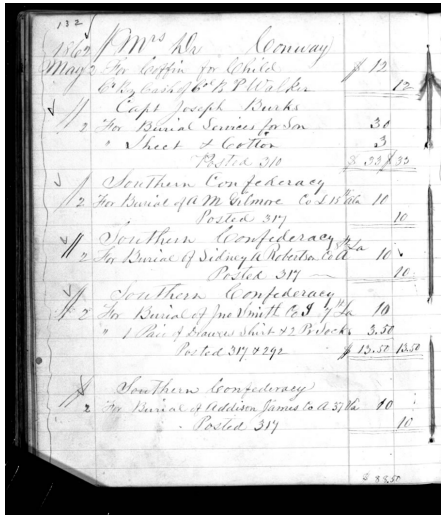 132
1862 Mrs Dr Conway
May 2 For Coffin for Child $ 12
Cr By Cash of B P Walker 12
Capt Joseph Burke
2 For Burial Services for Son 30
" Sheet & Cotton 3
Posted 310 $ 33 $ 33
Southern Confederacy
2 For Burial of A M Gilmore Co I 15th Ala 10
Posted 317 10
Southern Confederacy
2 For Burial of Sidney A Robertson Co A La 10
Posted 317 10
Southern Confederacy
2 For Burial of Jno Smith Co I 7th La 10
" 1 Pair of Drawers Shirt & 2 Pr Socks 3.50
Posted 317 & 292 $ 13.50 13.50
Southern Confederacy
2 For Burial of Addison James Co A 37 Va 10
Posted 317 10
$ 88.50